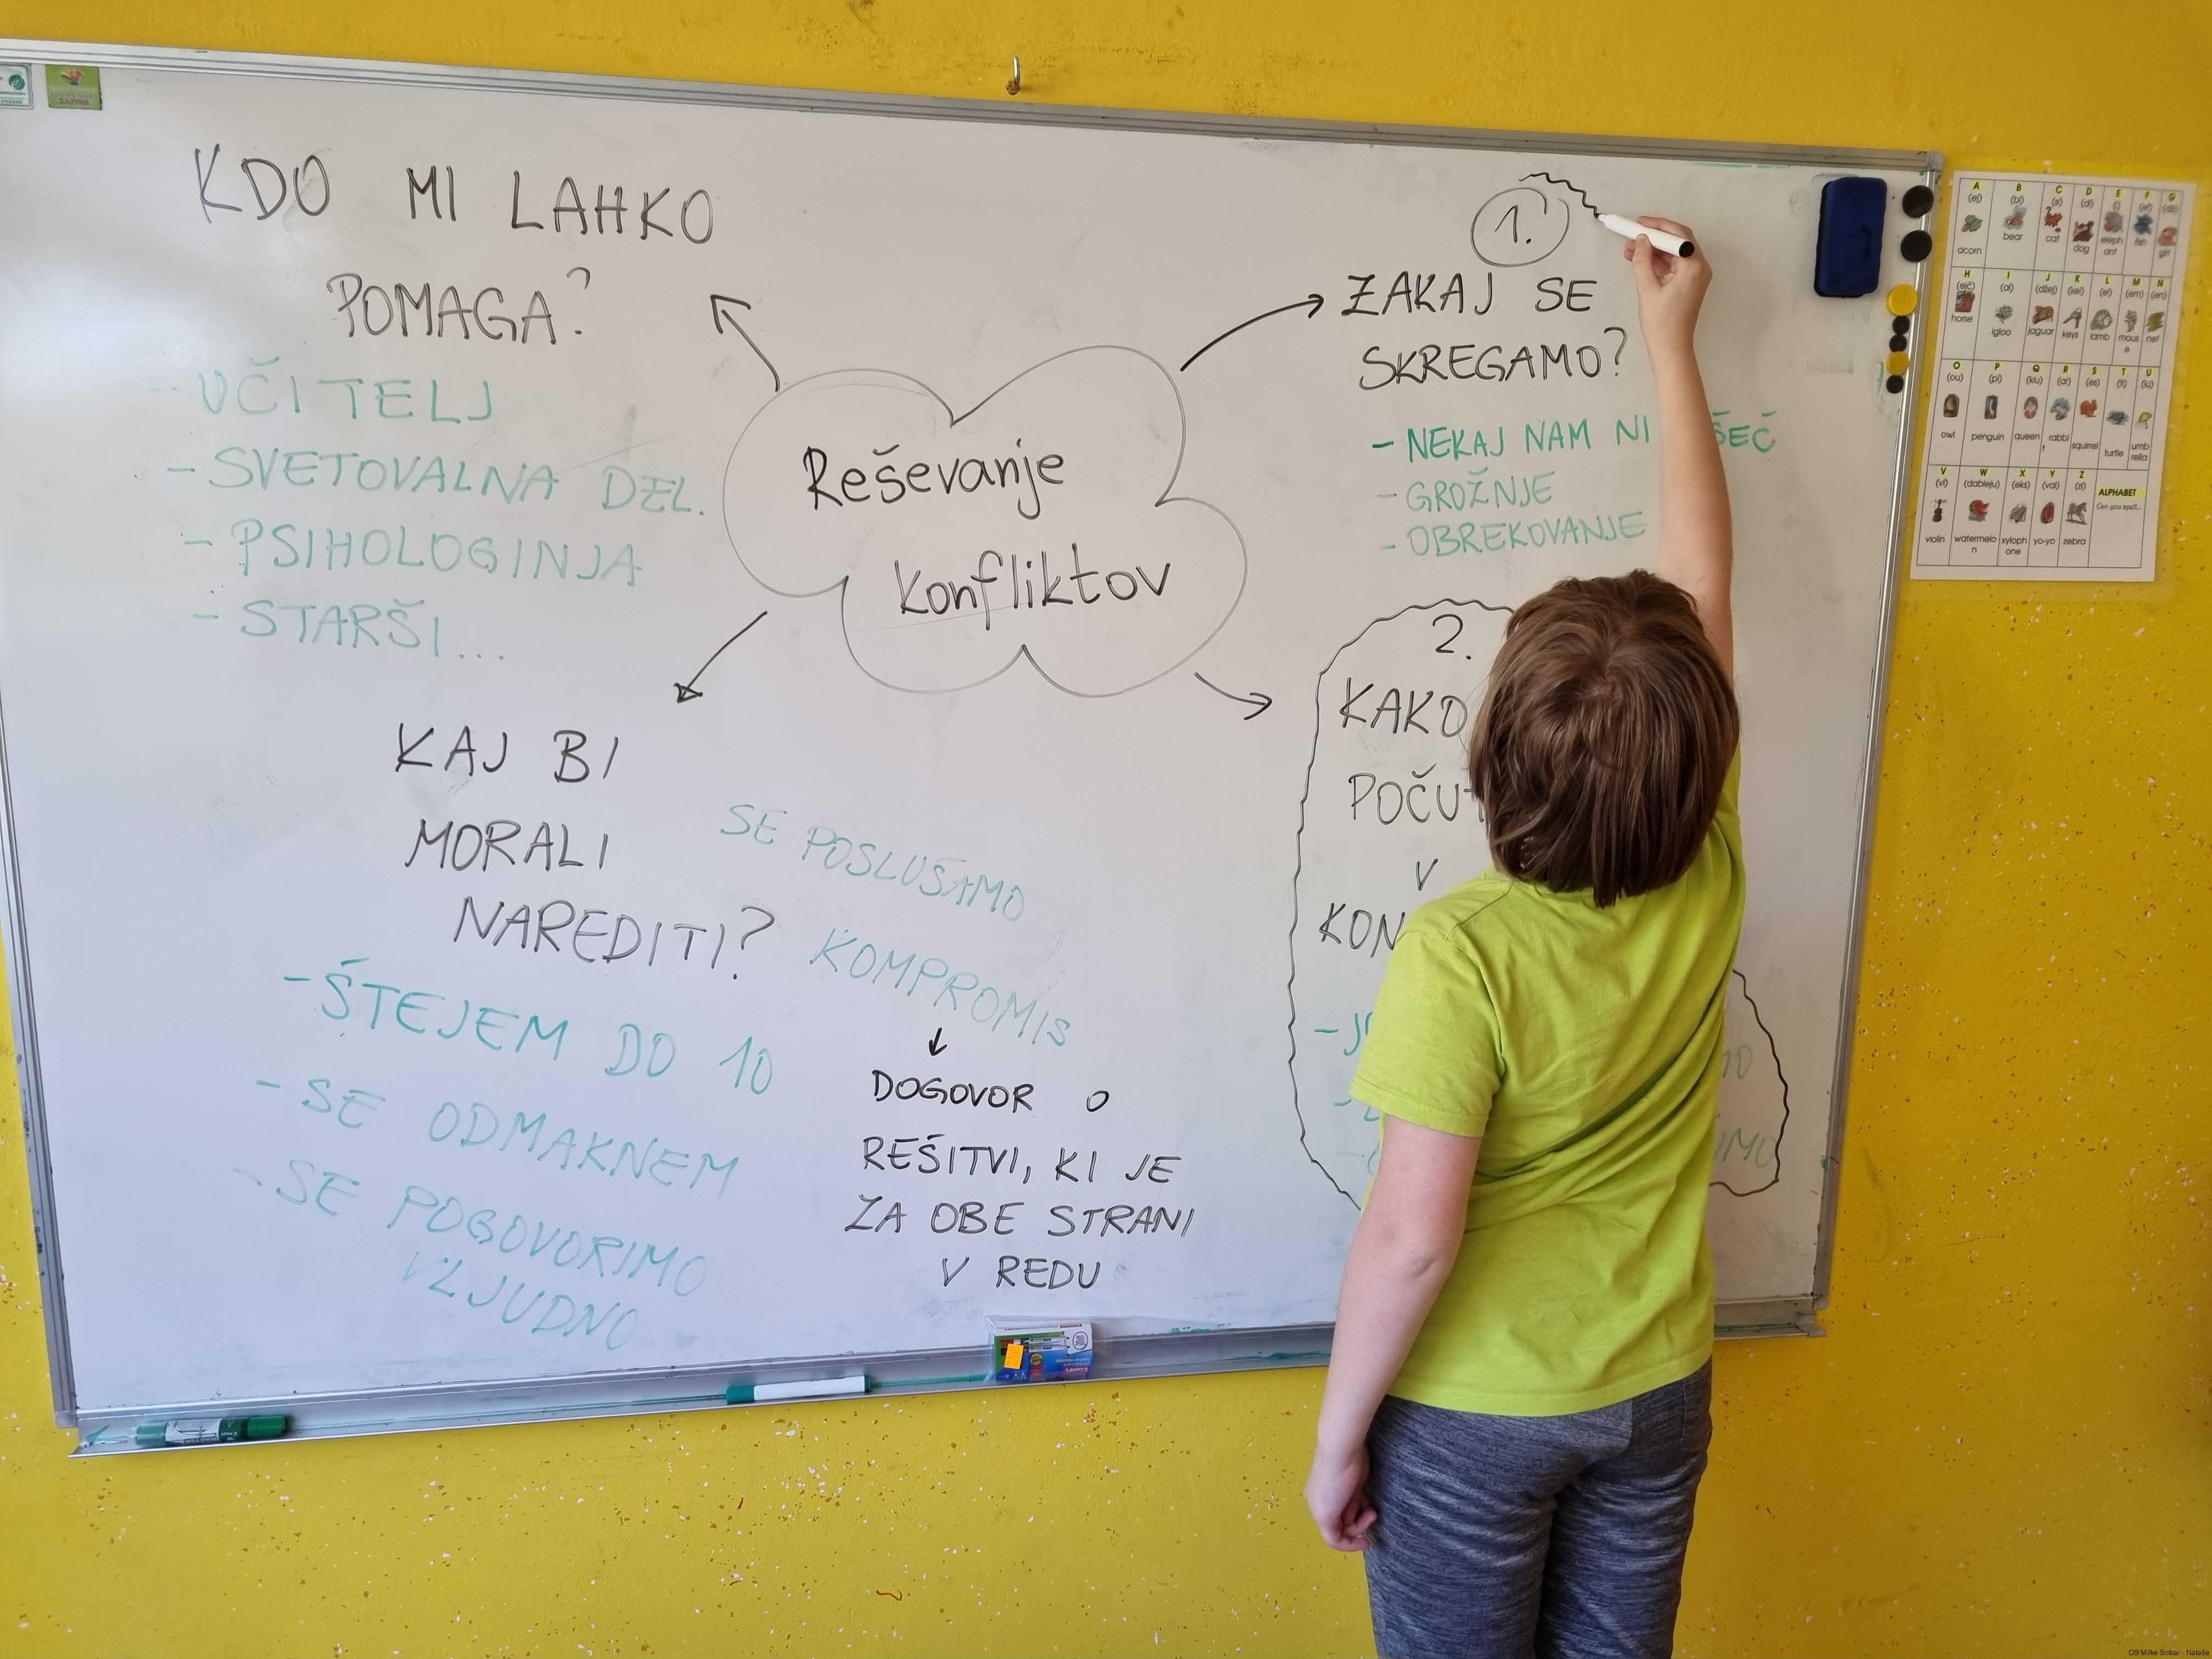 KDO MI LAHKO
POMAGA?
- UČITELJ
- SVETOVALNA DEL.
- PSIHOLOGINJA
- STARŠI...
Reševanje
konfliktov
1.
ZAKAJ SE
SKREGAMO?
- NEKAJ NAM NI
- GROŽNJE
- OBREKOVANJE
2.
KAKO
V
KAJ BI
MORALI
NAREDITI?
- ŠTEJEM DO 10
- SE ODMAKNEM
- SE POGOVORIMO
VLJUDNO
SE POSLUŠAMO
KOMPROMIS
DOGOVOR O
REŠITVI, KI JE
ZA OBE STRANI
V REDU
A B C D E F G
(ej) (bi) (si) (di) (i) (ef) (dži)
acorn bear cat dog eleph ant fish girl
H I J K L M N
(ejč) (ai) (džej) (kei) (el) (em) (en)
horse igloo jaguar keys lamb mous e net
O P Q R S T U
(ou) (pi) (kiu) (ar) (es) (ti) (iu)
owl penguin queen rabbi t squirrel turtle umb rella
V W X Y Z
(vi) (dableju) (eks) (vai) (zi)
violin watermelo n xyloph one yo-yo zebra
ALPHABET
Can you spell...
OŠ Milke Šobar - Nataše